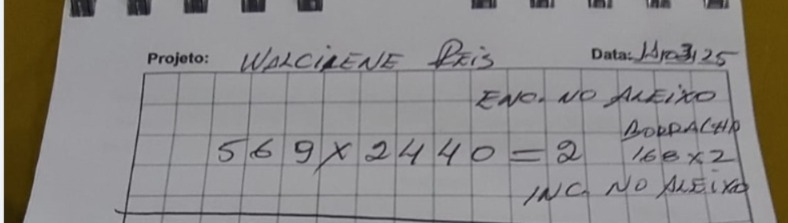 Projeto: WALCIRENE REIS Data: 11/03/25
ENC. NO ALEIXO
BORRACHA
569 X 2440 = 2 168 X 2
INC. NO ALEIXO